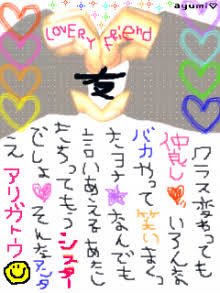 ayumi♡
LOVERY Friend
友
クラス変わっても
仲良し♡いろんな
バカやって笑いまくっ
たヨネ★なんでも
言いあえるあたし
たちってもうシスター
でしょ♡そんなアンタ
らえアリガトウ